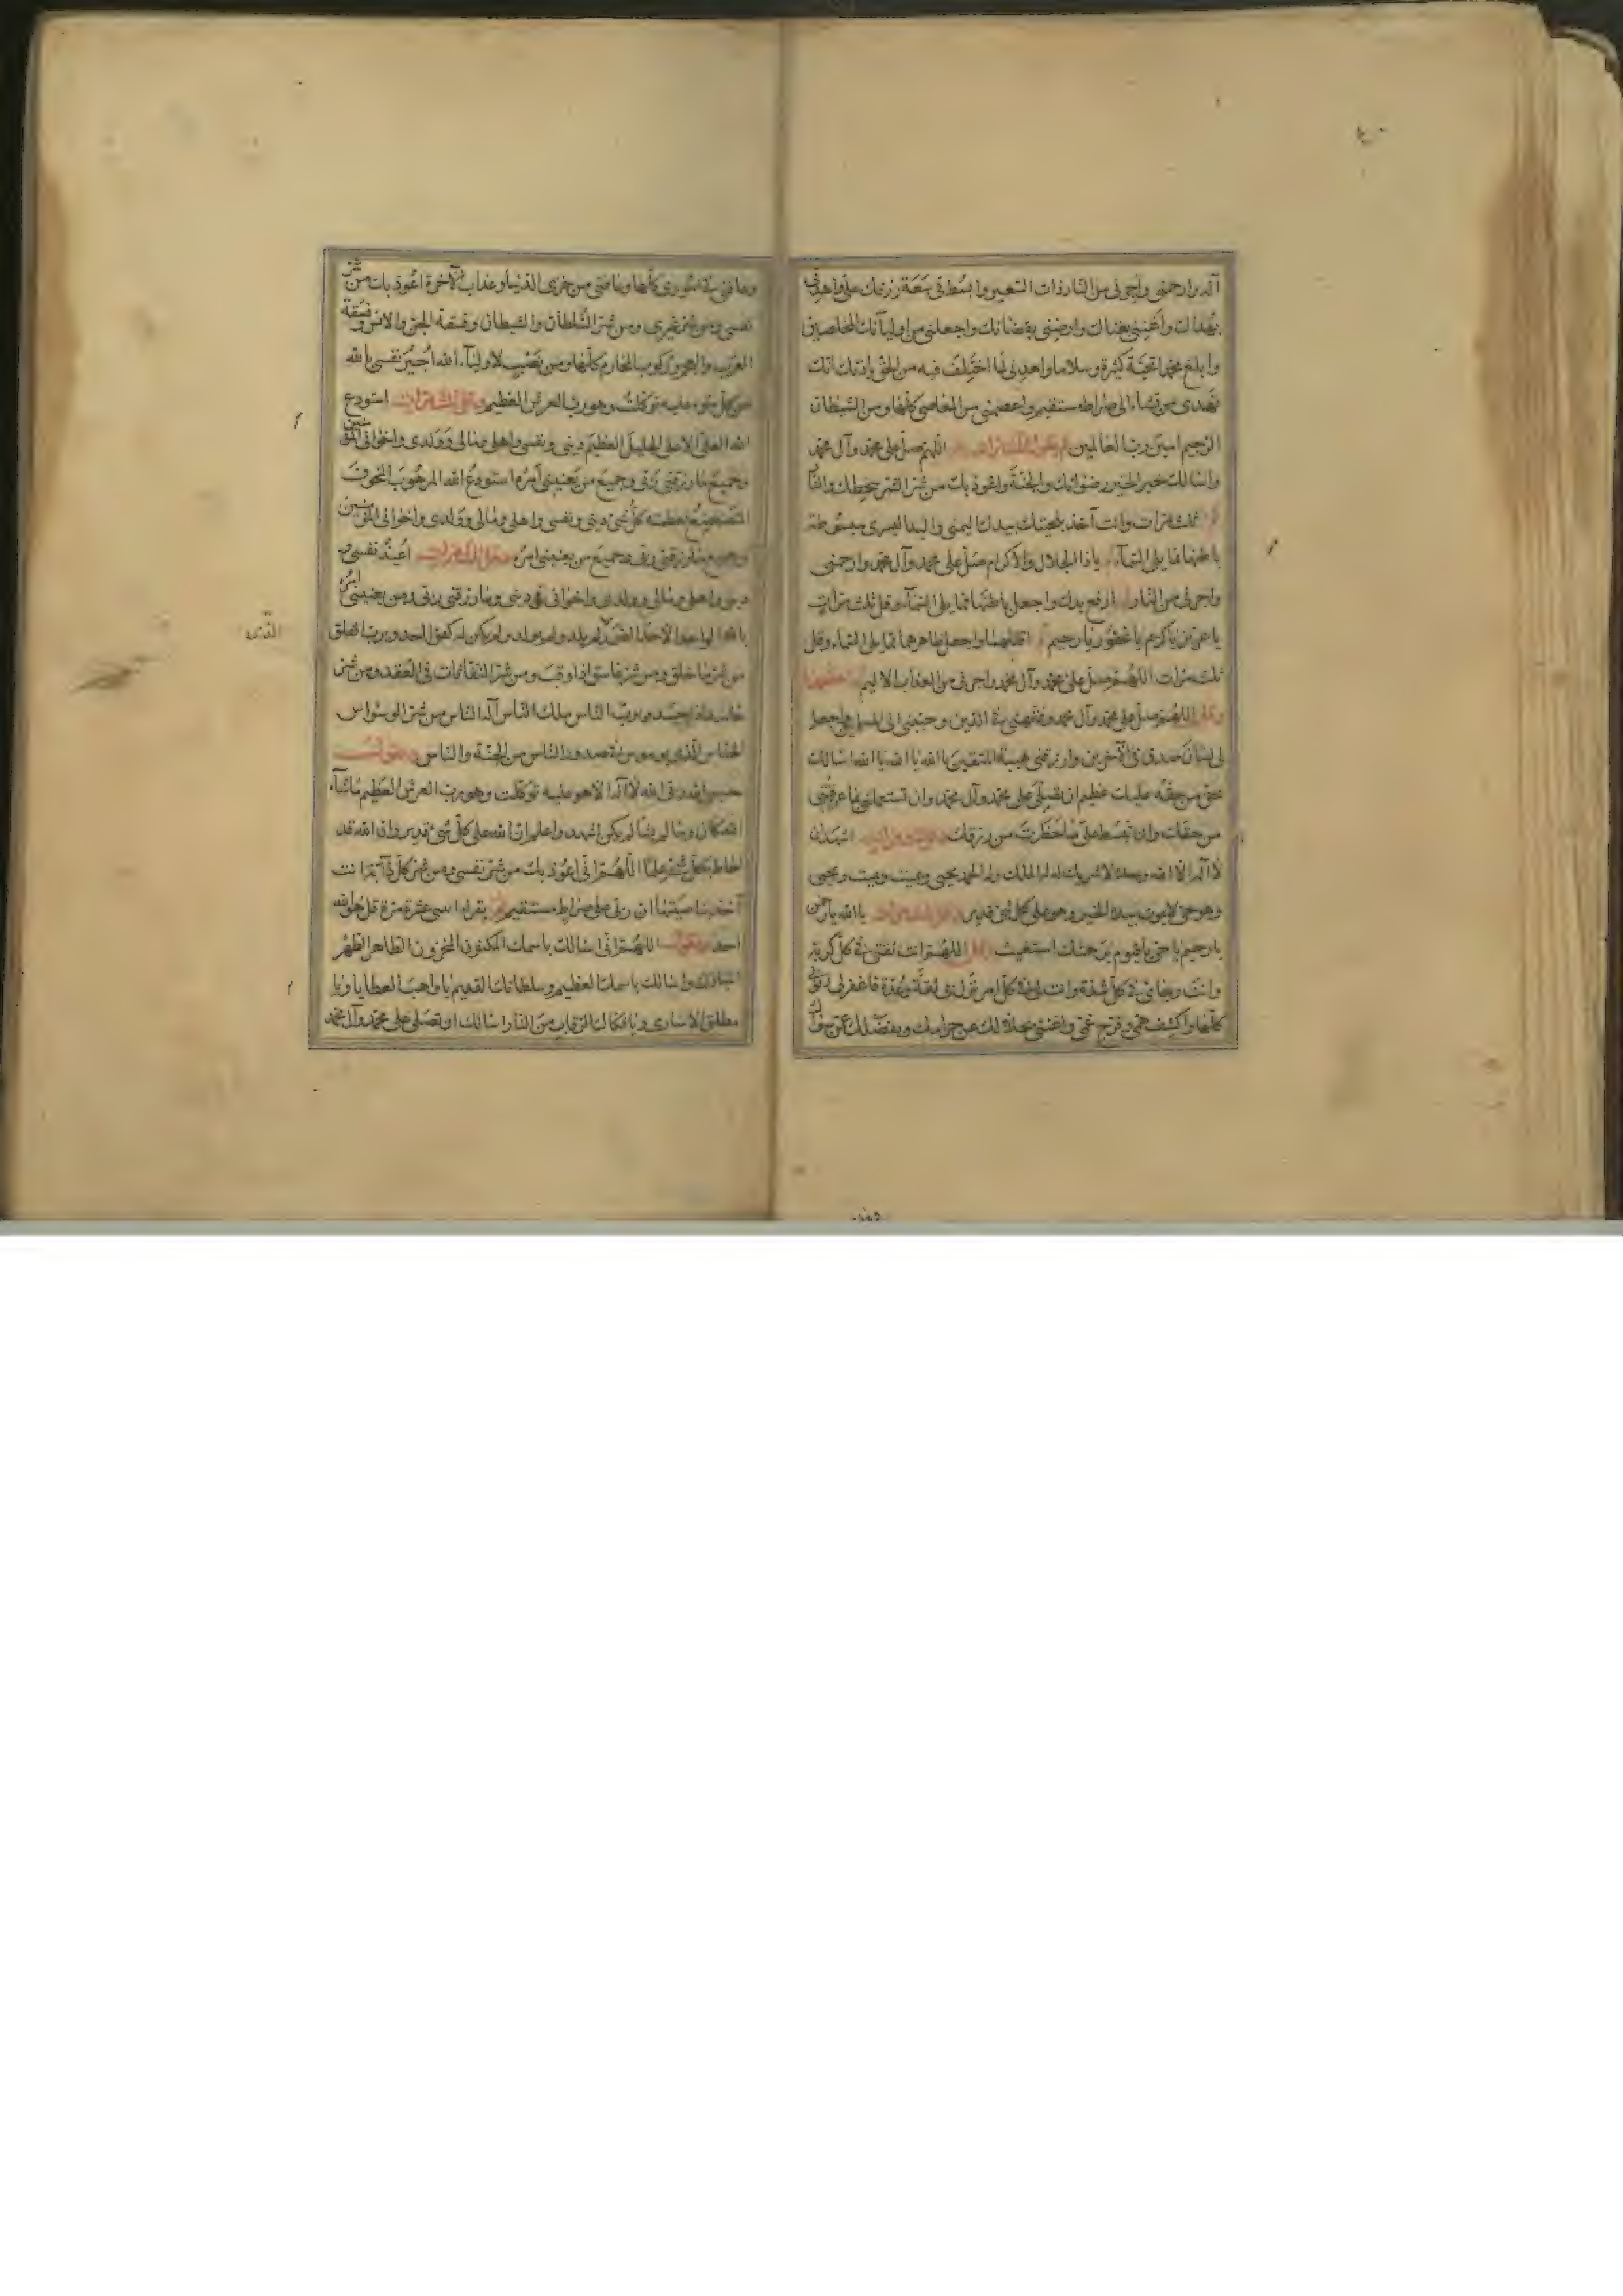 آله وارحمني واجرني من النار ذات السعير وابسط في سعة رزقك علي واهدني
بهداك واغنني بغناك وارضني بقضائك واجعلني من اوليائك المخلصين
وابلغ محمدا تحية كثيرة وسلاما واهدني لما اختلف فيه من الحق باذنك انك
تهدي من تشاء الى صراط مستقيم واعصمني من المعاصي كلها ومن الشيطان
الرجيم امين رب العالمين ثم يقول ثلث مرات اللهم صل على محمد وآل محمد
واسالك خير الخير رضوانك والجنة واعوذ بك من شر الشر سخطك والنار
ثلث مرات وانت آخذ بلحيتك بيدك اليمنى واليد اليسرى مبسوطة
باطنها مما يلي السماء يا ذا الجلال والاكرام صل على محمد وآل محمد وارحمني
واجرني من النار ارفع يدك واجعل باطنها مما يلي السماء وقل ثلث مرات
يا عزيز يا كريم يا غفور يا رحيم اقلبهما واجعل ظاهرهما مما يلي السماء وقل
ثلث مرات اللهم صل على محمد وآل محمد واجرني من العذاب الاليم اخفضهما
وقل اللهم صل على محمد وآل محمد وفقهني في الدين وحببني الى المسلمين واجعل
لي لسان صدق في الآخرين وارزقني هيبة المتقين يا الله يا الله يا الله اسالك
بحق من حقه عليك عظيم ان تصلي على محمد وآل محمد وان تستعملني بما عرفتني
من حقك وان تبسط علي ما حظرت من رزقك اشهد ان
لا اله الا الله وحده لا شريك له له الملك وله الحمد يحيي ويميت ويميت ويحيي
وهو حي لا يموت بيده الخير وهو على كل شئ قدير وقل ثلث مرات يا الله يا رحمن
يا رحيم يا حي يا قيوم برحمتك استغيث وقل اللهم انت ثقتي في كل كربة
وانت رجائي في كل شدة وانت لي في كل امر نزل بي ثقة وعدة فاغفر لي ذنوبي
كلها واكشف همي وفرج غمي واغنني بحلالك عن حرامك وبفضلك عمن سواك
وعافني في اموري كلها وعافني من خزي الدنيا وعذاب الآخرة اعوذ بك من شر
نفسي ومن شر غيري ومن شر السلطان والشيطان وفسقة الجن والانس وفسقة
العرب والعجم وركوب المحارم كلها ومن نصب لاولياء الله اجير نفسي بالله
من كل سوء عليه توكلت وهو رب العرش العظيم وقل ثلث مرات استودع
الله العلي الاعلى الجليل العظيم ديني ونفسي واهلي ومالي وولدي واخواني المؤمنين
وجميع ما رزقني ربي وجميع من يعنيني امره استودع الله المرهوب المخوف
المتضعضع لعظمته كل شئ ديني ونفسي واهلي ومالي وولدي واخواني المؤمنين
وجميع ما رزقني ربي وجميع من يعنيني امره وقل ثلث مرات اعيذ نفسي و
ديني واهلي ومالي وولدي واخواني في ديني وما رزقني ربي ومن يعنيني امره
بالله الواحد الاحد الصمد لم يلد ولم يولد ولم يكن له كفوا احد وبرب الفلق
من شر ما خلق ومن شر غاسق اذا وقب ومن شر النفاثات في العقد ومن شر
حاسد اذا حسد وبرب الناس ملك الناس آله الناس من شر الوسواس
الخناس الذي يوسوس في صدور الناس من الجنة والناس ويقول
حسبي الله ربي الله لا اله الا هو عليه توكلت وهو رب العرش العظيم ما شاء
الله كان وما لم يشا لم يكن اشهد واعلم ان الله على كل شئ قدير وان الله قد
احاط بكل شئ علما اللهم اني اعوذ بك من شر نفسي ومن شر كل دابة انت
آخذ بناصيتها ان ربي على صراط مستقيم ثم يقرا اثنى عشرة مرة قل هو الله
احد ويقول اللهم اني اسالك باسمك المكنون المخزون الطاهر الطهر
المبارك واسالك باسمك العظيم وسلطانك القديم يا واهب العطايا ويا
مطلق الاسارى ويا فكاك الرقاب من النار اسالك ان تصلي على محمد وآل محمد